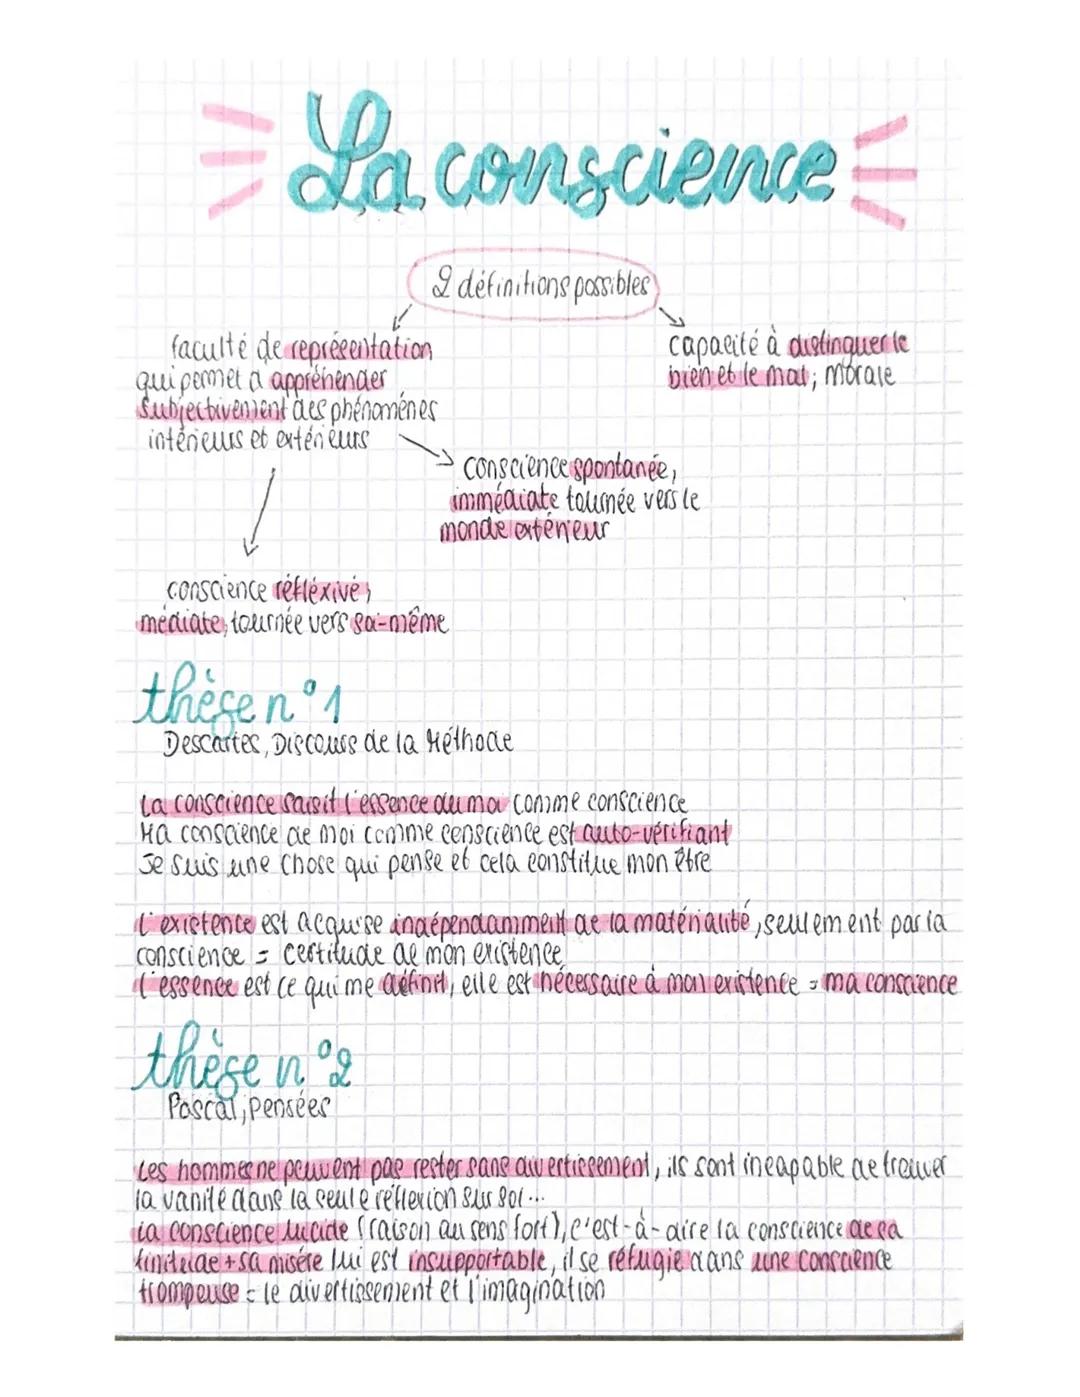 La conscience
2 définitions possibles
faculté de représentation
qui permet d'appréhender
subjectivement des phénomènes
intérieurs et extérieurs
capacité à distinguer le
bien et le mal; morale
conscience spontanée,
immédiate tournée vers le
monde extérieur
conscience réfléxive,
médiate, tournée vers soi-même
thèse n°1
Descartes, Discours de la Méthode
La conscience saisit l'essence du moi comme conscience
Ma conscience de moi comme conscience est auto-vérifiant
Je suis une chose qui pense et cela constitue mon être
L'existence est acquise indépendamment de la matérialité, seulement par la
conscience = certitude de mon existence
L'essence est ce qui me définit, elle est nécessaire à mon existence = ma conscience
thèse n°2
Pascal, Pensées
Les hommes ne peuvent pas rester sans divertissement, ils sont incapable de trouver
la vanité dans la seule réflexion sur soi...
La conscience lucide (raison au sens fort), c'est-à-dire la conscience de sa
finitude + sa misère lui est insupportable, il se réfugie dans une conscience
trompeuse = le divertissement et l'imagination